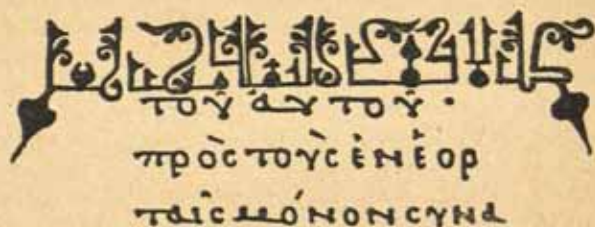 τοῦ ἀυτοῦ·
πρὸςτοὺςἐνἑορ
ταῖςμόνονσυνα